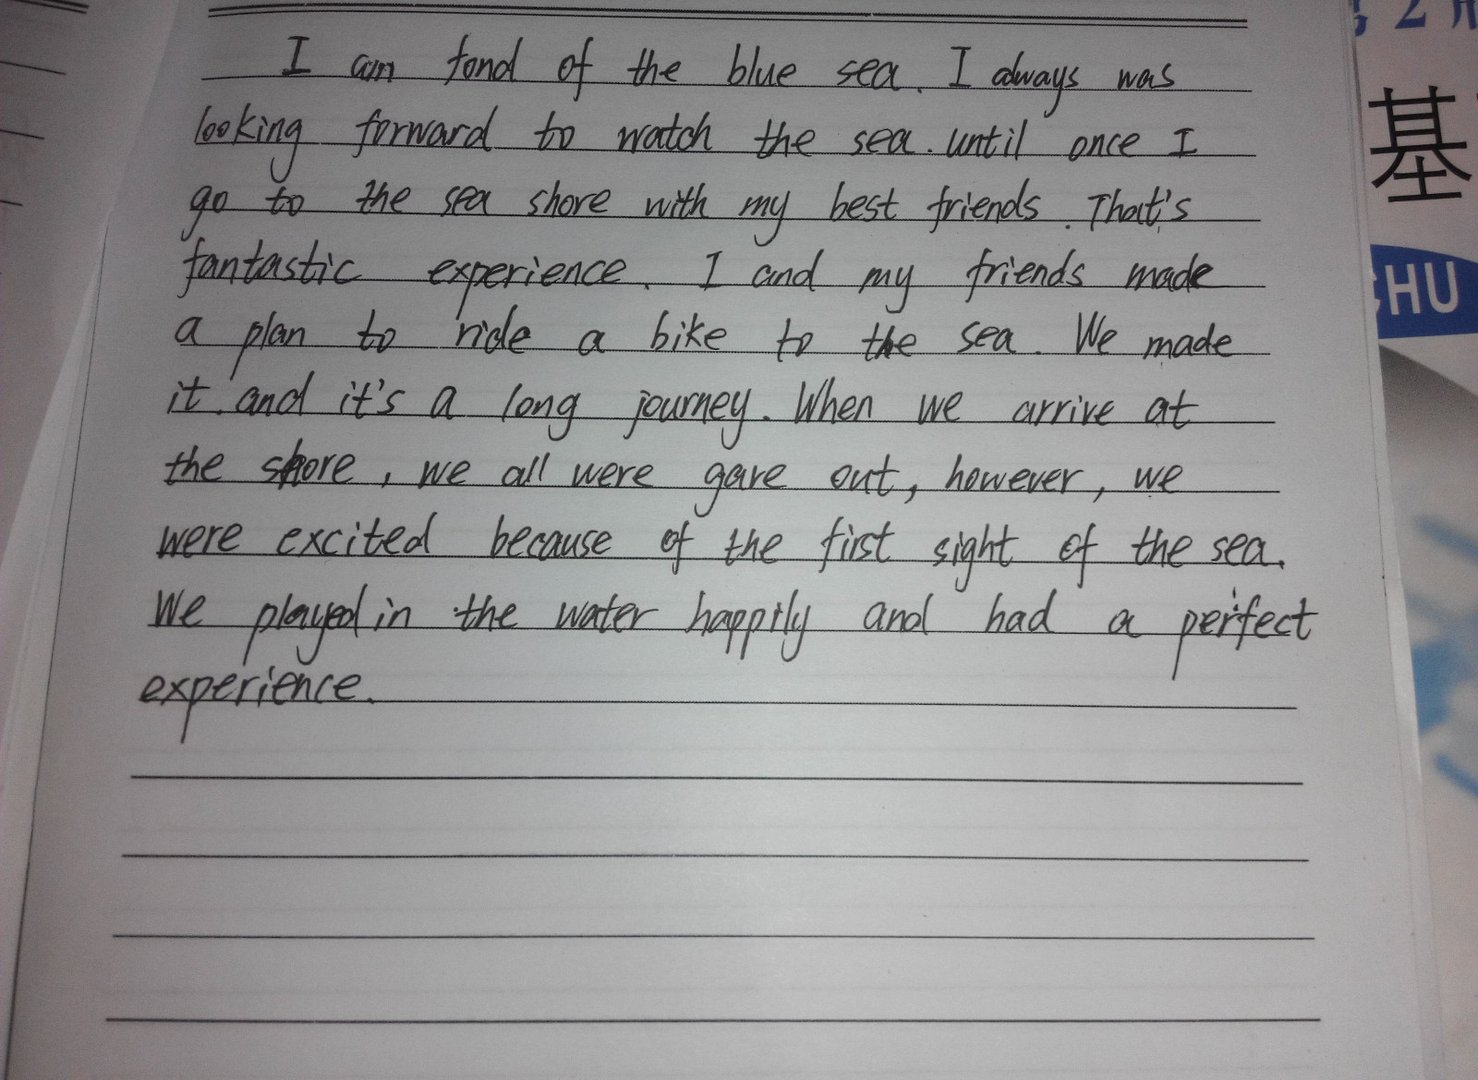 I am fond of the blue sea. I always was
looking forward to watch the sea. until once I
go to the sea shore with my best friends. That's
fantastic experience. I and my friends made
a plan to ride a bike to the sea. We made
it. and it's a long journey. When we arrive at
the shore, we all were gave out, however, we
were excited because of the first sight of the sea.
We played in the water happily and had a perfect
experience.
2
基
CHU